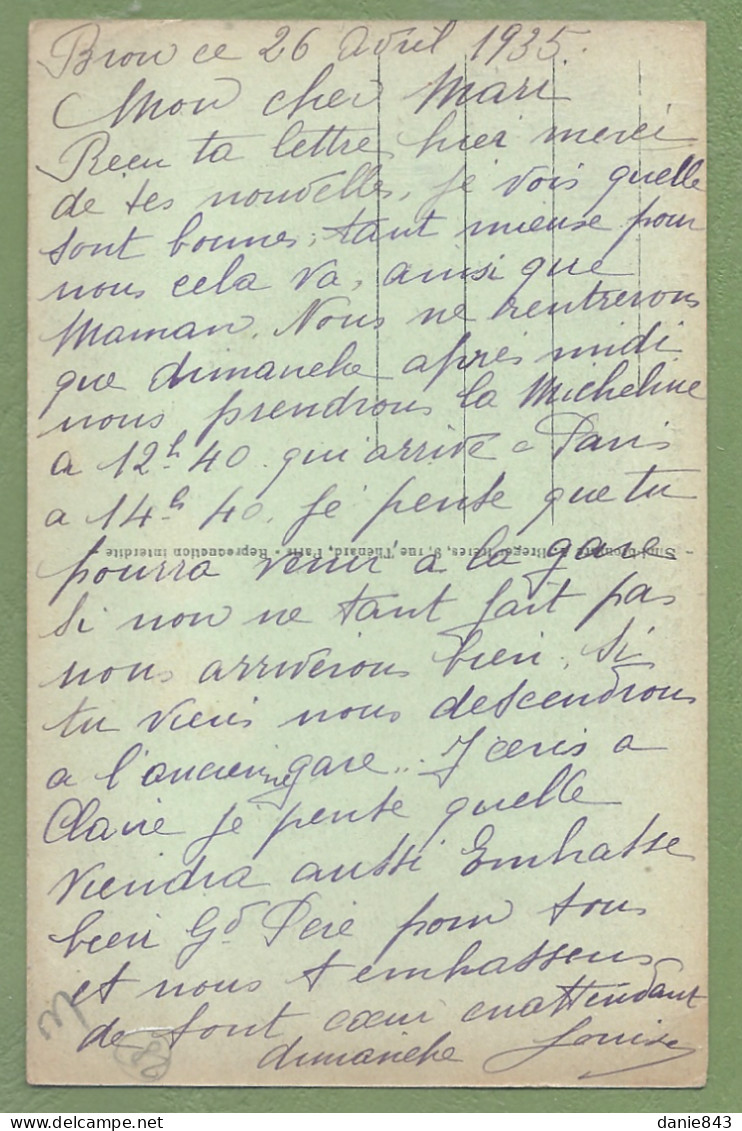 Brou ce 26 Avril 1935.
Mon cher Mari
Reçu ta lettre hier merci
de tes nouvelles, je vois quelle
sont bonnes, tant mieuse pour
nous cela va, ainsi que
Maman. Nous ne rentrerons
que dimanche après midi
nous prendrons la Micheline
a 12h 40 qui arrive a Paris
a 14h 40. Je pense que tu
- Simi-Bromure A. Breger frères, 9, rue Thénard, Paris - Reproduction interdite
pourra venir a la gare
si non ne tant fait pas
nous arriverons bien. Si
tu viens nous descendrons
a l'ancienne gare.. J'ecris a
Claire je pense quelle
viendra aussi Embrasse
bien Gd Père pour tous
et nous t embrassons
de tont cœur enattendant
dimanche Louise
danie843